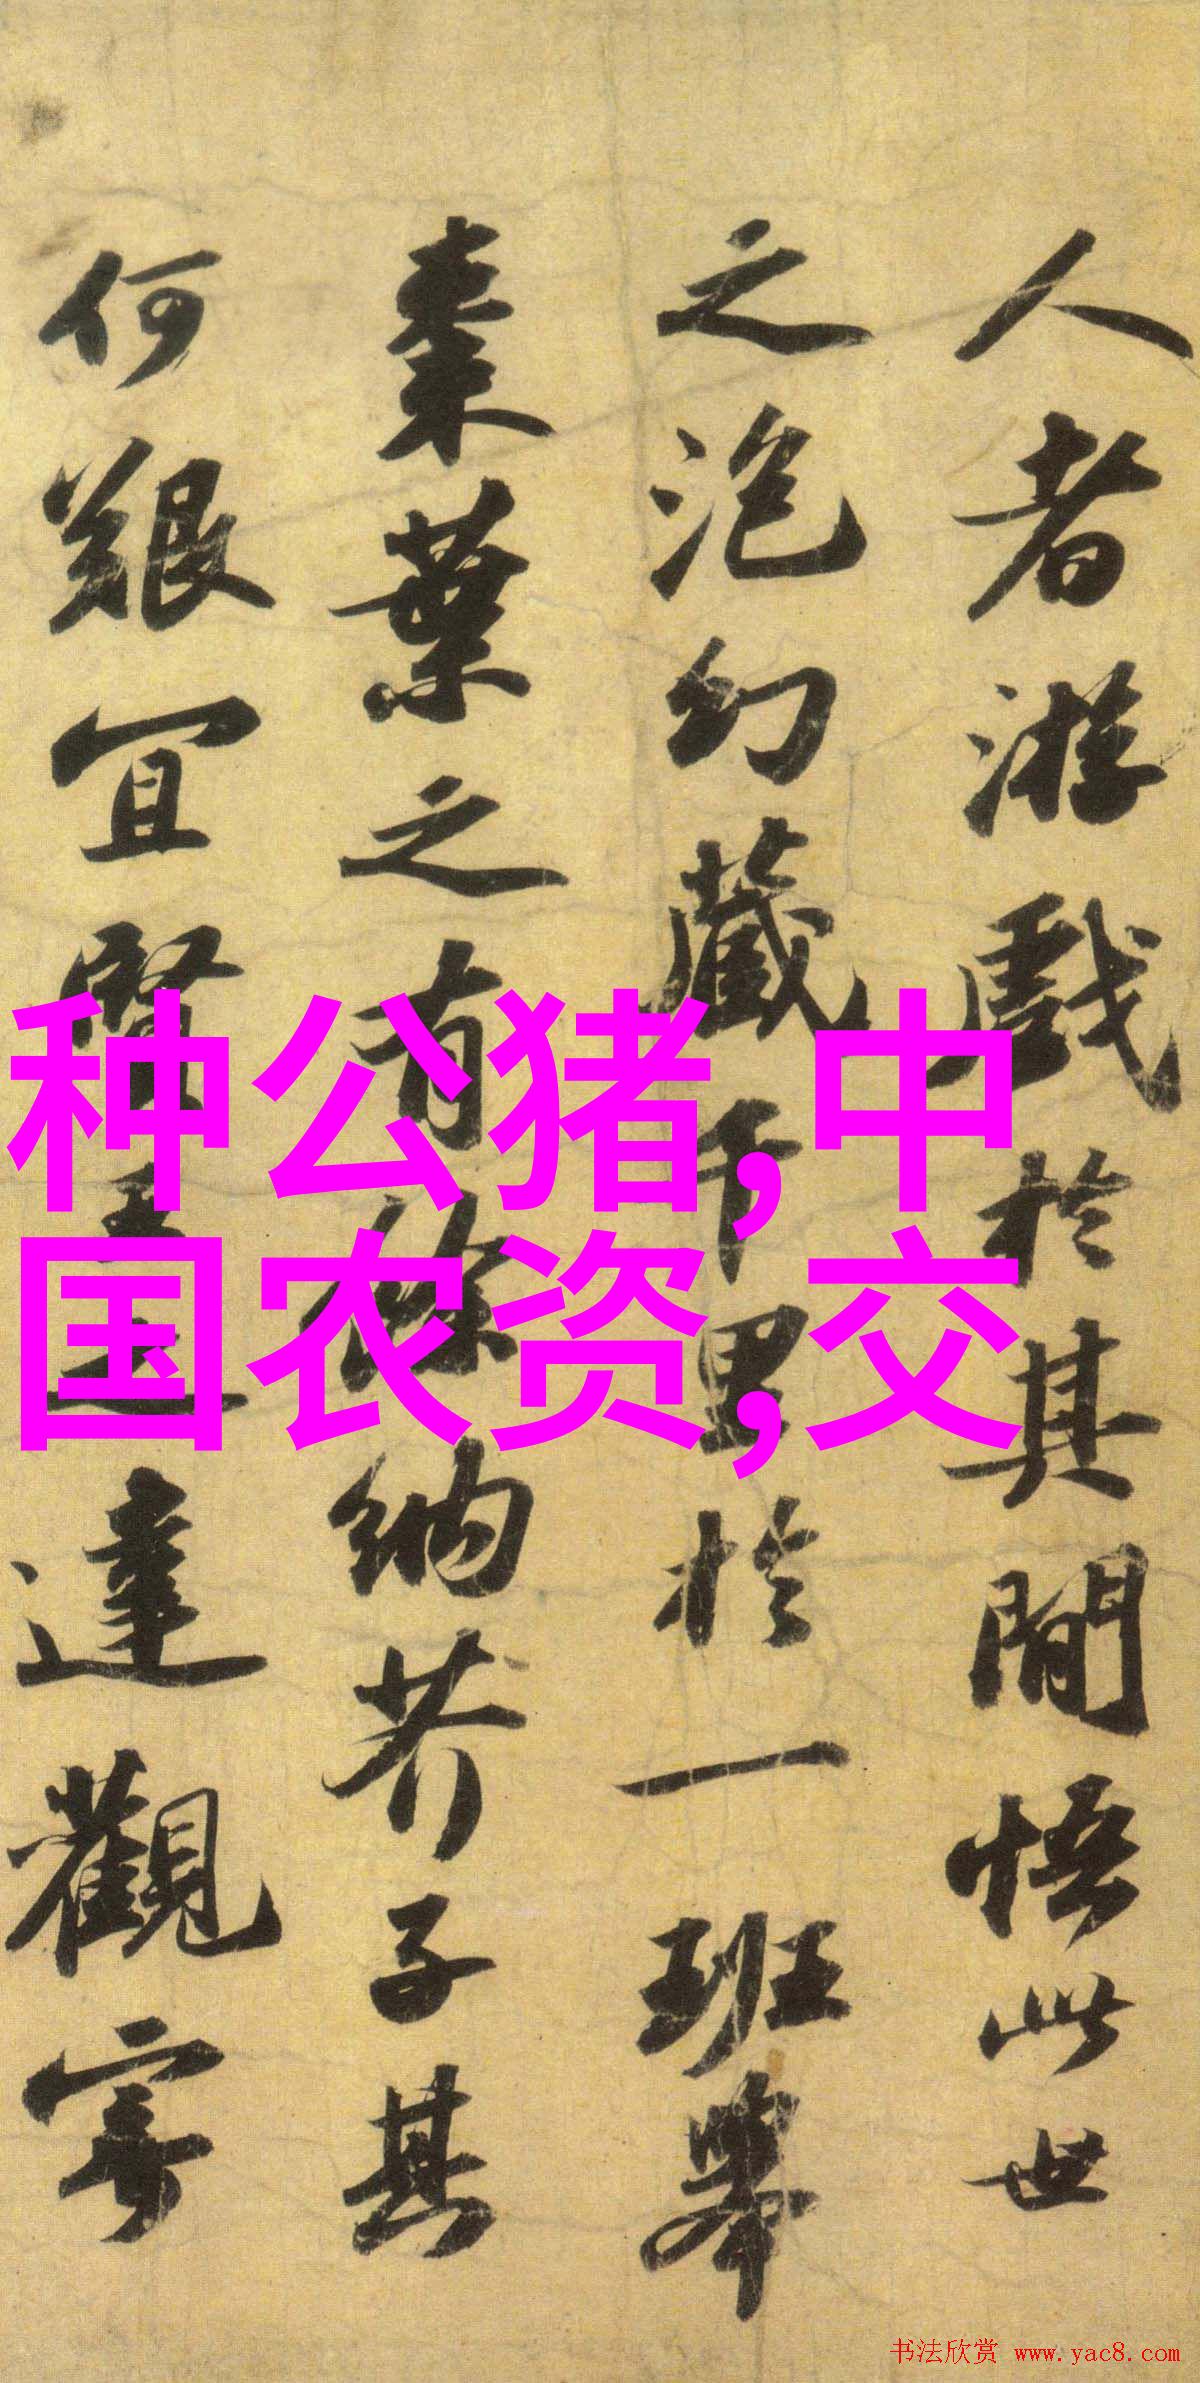 人者游戲於其間悟此世
之泡幻藏千里於一班舉
棗葉之有餘納芥子其
何艱宜賢王之達觀寄
种公猪,中
国农资,交
书法欣赏 www.yac8.com